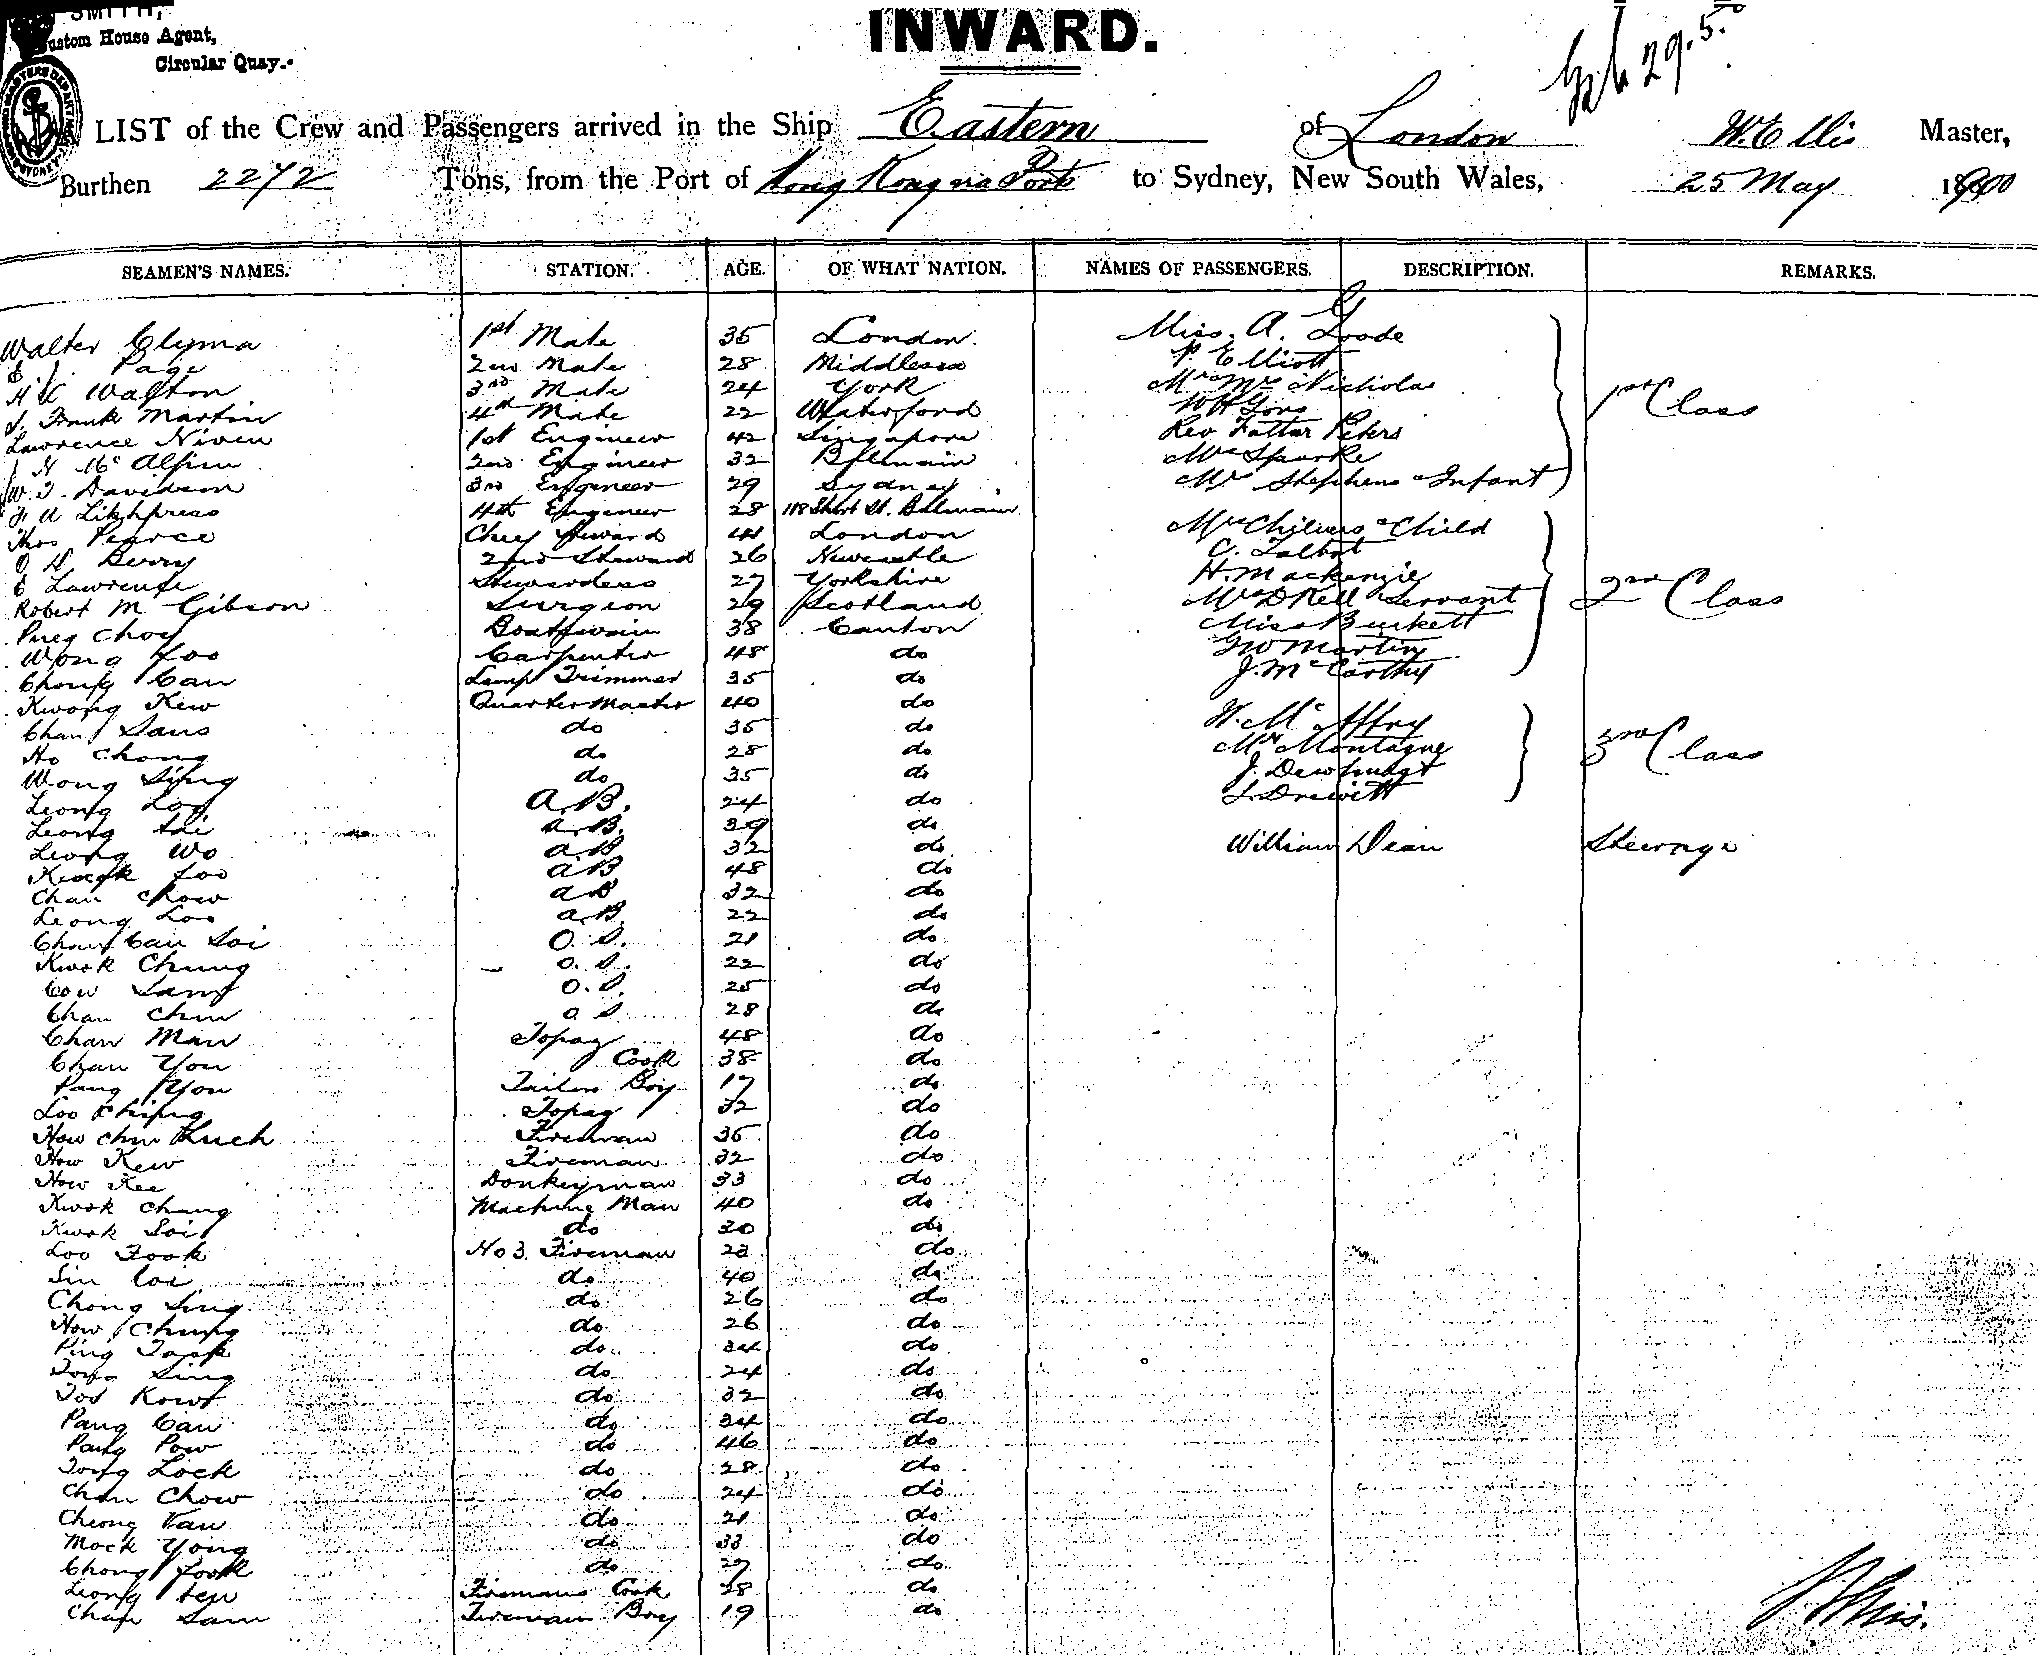 SMITH,
Custom House Agent,
Circular Quay.
INWARD.
29.5.
LIST of the Crew and Passengers arrived in the Ship Eastern of London W. Ellis Master,
Burthen 2272 Tons, from the Port of Hong Kong via Ports to Sydney, New South Wales, 25 May 1900
SEAMEN'S NAMES. STATION. AGE. OF WHAT NATION. NAMES OF PASSENGERS. DESCRIPTION. REMARKS.
Walter Clyma 1st Mate 35 London Miss A. Goode
Page 2nd Mate 28 Middlesex P. Elliott
Walton 3rd Mate 24 York Mrs McNicholas
Frank Martin 4th Mate 22 Waterford 1st Class
Lawrence Niven 1st Engineer 42 Singapore Rev Father Peters
McAlpin 2nd Engineer 32 Balmain Mrs Sparke
W. J. Davidson 3rd Engineer 29 Sydney Mrs Stephens & Infant
4th Engineer 28 118 Short St. Balmain
Thos Pearce Chief Steward 41 London Mrs Chilvers & Child
Berry 2nd Steward 26 Newcastle C. Talbot
E Lawrence Stewardess 27 Yorkshire H. Mackenzie
Robert M Gibson Surgeon 29 Scotland Servant 2nd Class
Choy Boatswain 38 Canton Miss Burkett
Wong Foo Carpenter 48 do GW Martin
Chong Cau Lamp Trimmer 35 do J. McCarthy
Kwong Kew Quarter Master 40 do
Chan Sang do 35 do
Ho Chong do 28 do Montague 3rd Class
Wong Sing do 35 do J. Dewhurst
Leong Log A.B. 24 do J. Drewitt
Leong Sai A.B. 39 do
Leong Wo A.B 32 do William Dean Steerage
Kwok Foo AB 48 do
Chan Chow AB 32 do
Leong Loo A.B. 22 do
Chan Cau Soi O.S. 21 do
Kwok Chung O.S. 22 do
Cow Sang O.S. 25 do
Chan Chin O.S. 28 do
Chan Man Topaz 48 do
Chan You Cook 38 do
Pang You Sailors Boy 17 do
Loo Ching Topaz 32 do
How Chu Fireman 35 do
How Kew Fireman 32 do
How Kee Donkeyman 33 do
Kwok Chang Machine Man 40 do
Kwok Soi do 30 do
Loo Fook No 3. Fireman 23 do
Sin Coi do 40 do
Chong Sing do 26 do
How Chung do 26 do
Ping do 34 do
Tong Sing do 24 do
do 32 do
Pang Cau do 34 do
Pang Pow do 46 do
Tong Lock do 28 do
Chan Chow do 24 do
Cheong Kau do 21 do
Mock Yong do 33 do
Chong Fook do 27 do
Leong Firemans Cook 28 do
Chan Sam Fireman Boy 19 do
W Ellis.